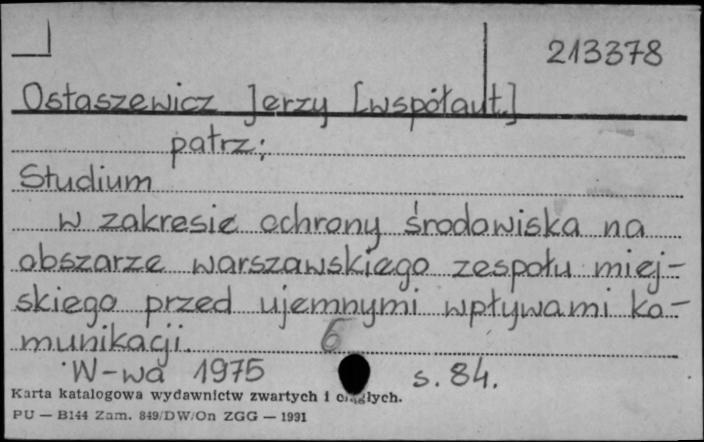 213378
Ostaszewicz Jerzy [współaut.]
patrz:
Studium
w zakresie ochrony środowiska na
obszarze warszawskiego zespołu miej-
skiego przed ujemnymi wpływami ko-
munikacji. 6
W-wa 1975 s. 84.
Karta katalogowa wydawnictw zwartych i ciągłych.
PU — B144 Zam. 849/DW/On ZGG — 1991